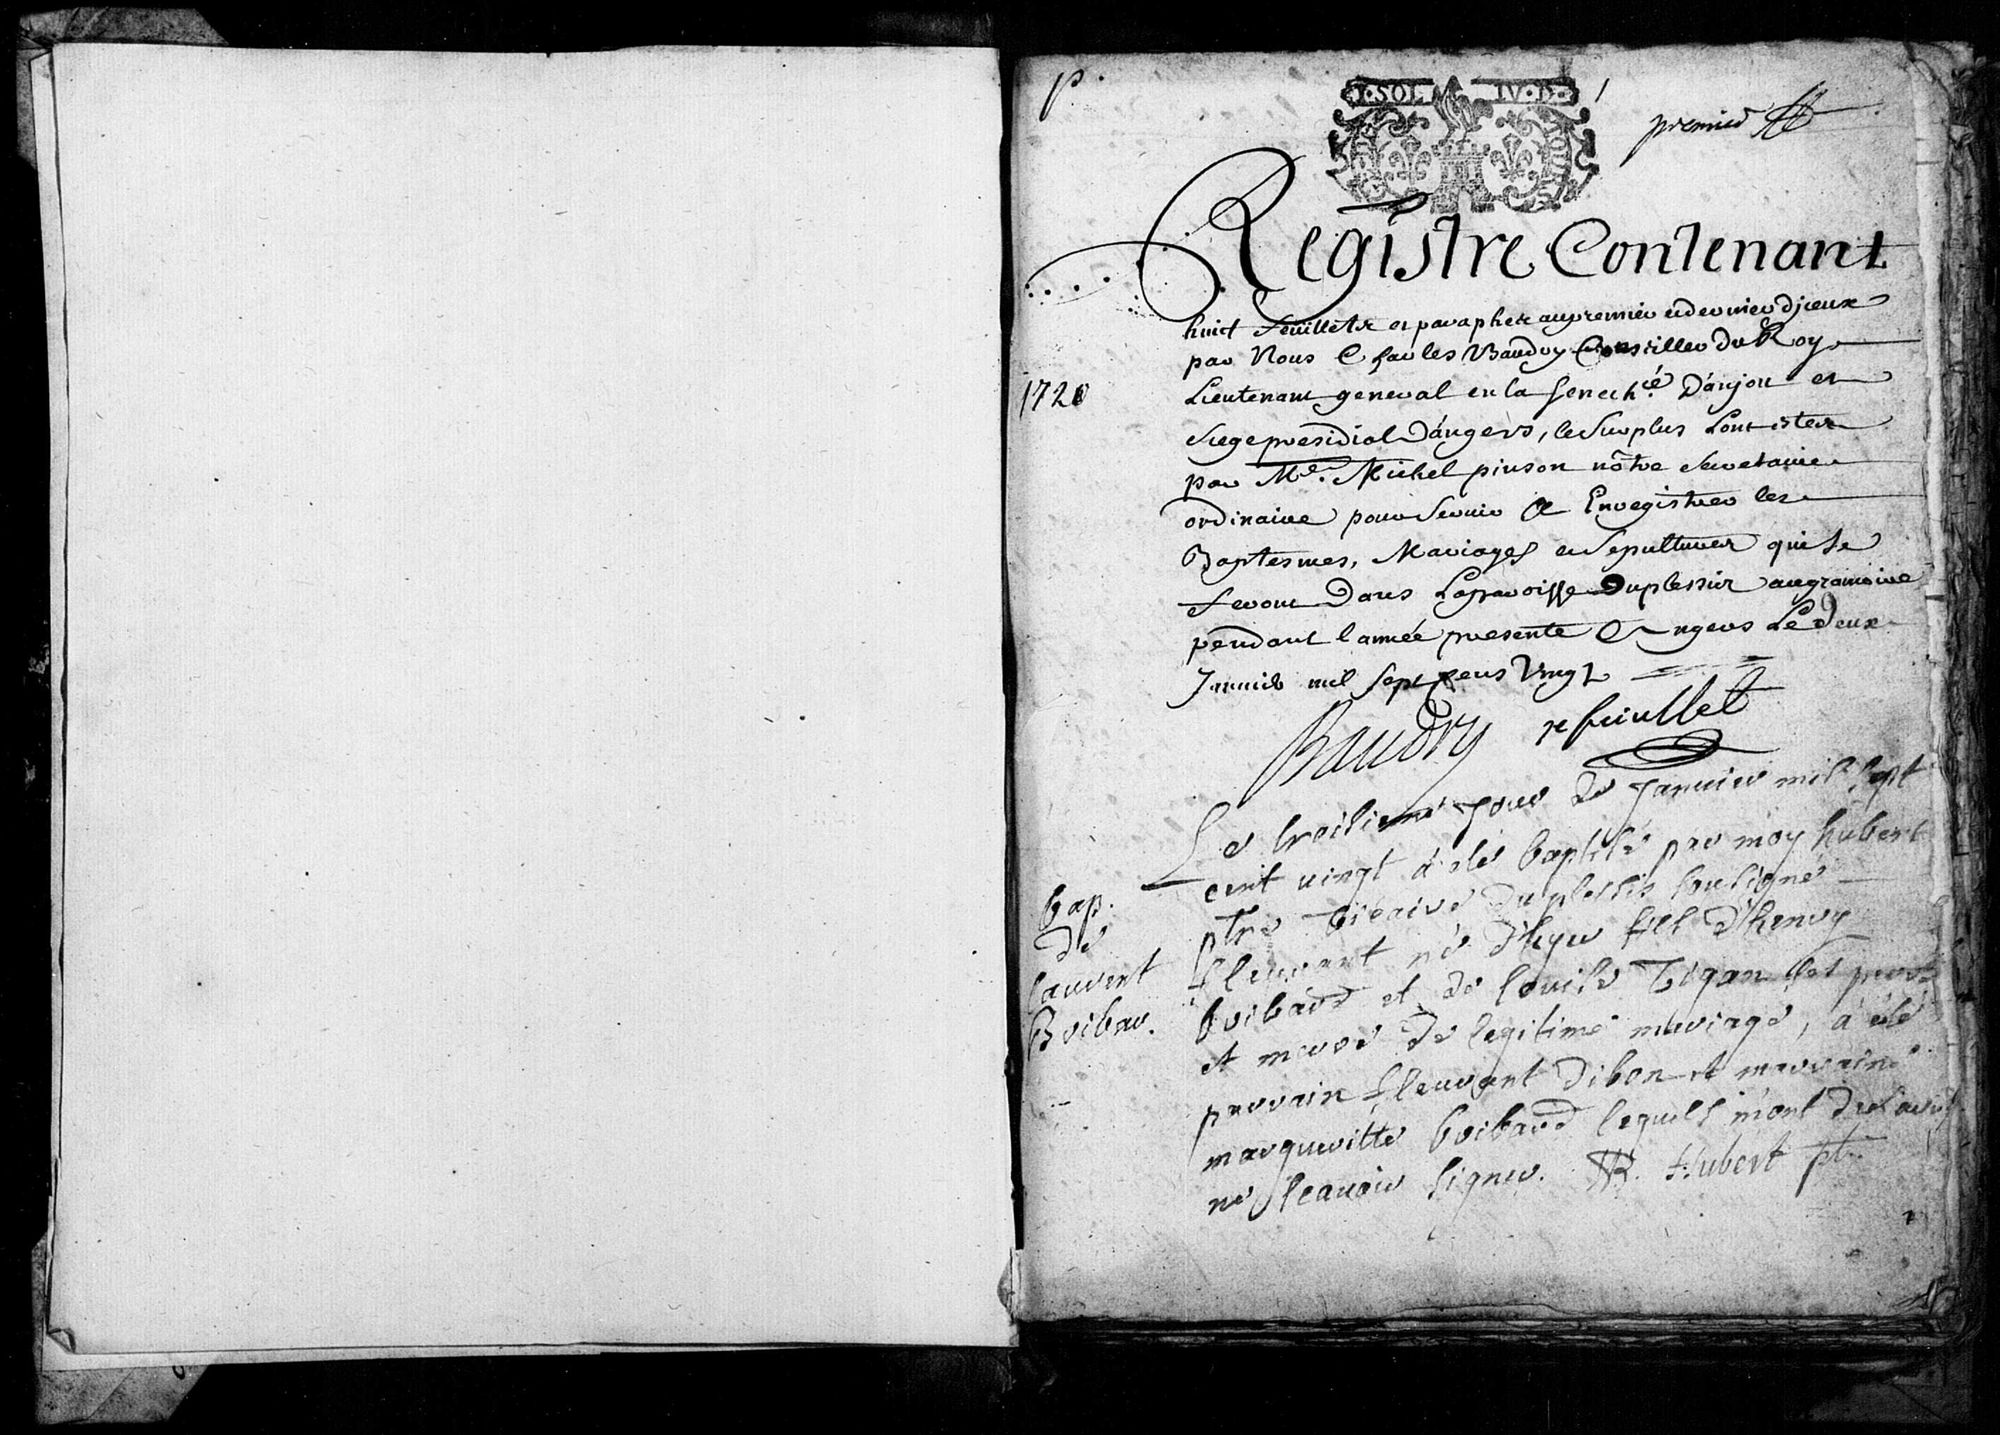 p.
premier
Registre Contenant
huict feuillets et paraphez au premier et dernier d'jceux
par Nous Charles Baudry Conseiller du Roy
1720
Lieutenant general en la senechée D'anjou et
Siege presidial D'angers, le surplus
par Me. Michel pinson nôtre secretaire
ordinaire pour servir a Enregistrer les
Baptesmes, Mariages et sepultures qui se
feront Dans La parroisse Duplessis augrammoire
pendant l'année presente A Angers Le deux
Janvier mil sept cens Vingt
Baudry 1er feuillet
Le troisieme jour de Janvier mil sept
cent vingt à eté baptisé par moy hubert
bap.
ptre vicaire du plessis soussigné
de
fleurant né d'hyer fils d'henry
laurent
boibard et de louise ses pere
Boibar.
et mere de legitime mariage, à été
parrain fleurant dibon et marraine
margueritte boibard lequels m'ont declaré
ne scauoir signer. R. Hubert ptre